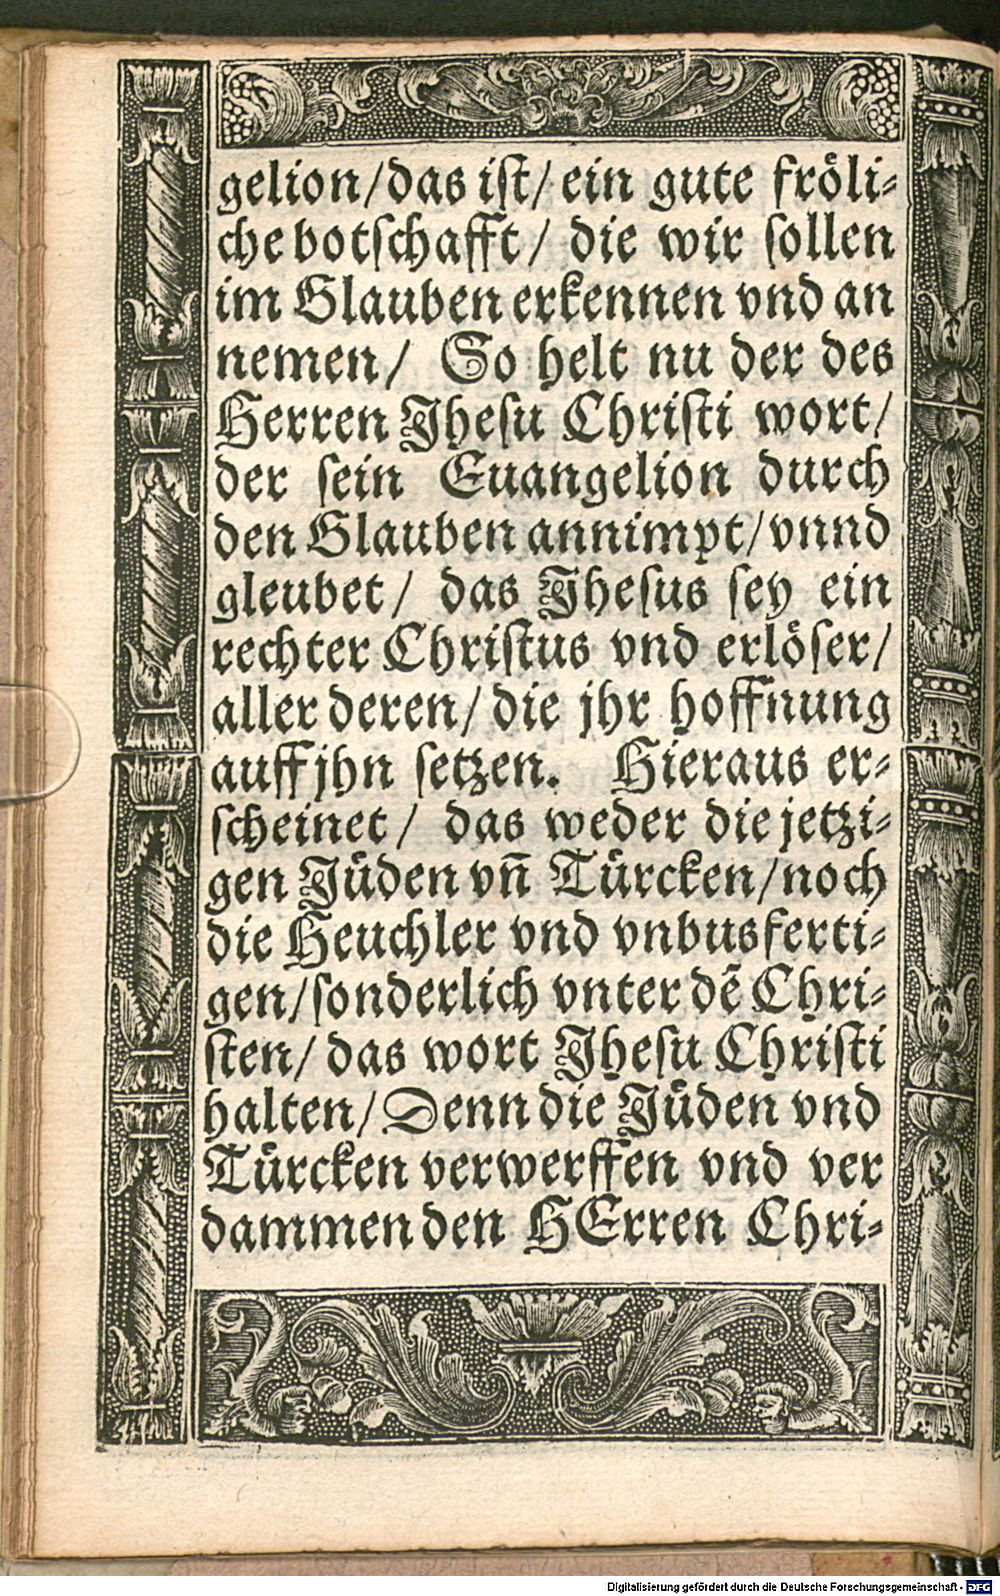 gelion/das ist/ ein gute fröli⸗
che botschafft/ die wir sollen
im Glauben erkennen vnd an
nemen/ So helt nu der des
Herren Jhesu Christi wort/
der sein Euangelion durch
den Glauben annimpt/vnnd
gleubet/ das Jhesus sey ein
rechter Christus vnd erlöser/
aller deren/ die jhr hoffnung
auff jhn setzen. Hieraus er⸗
scheinet/ das weder die jetzi⸗
gen Jüden vn̄ Türcken/noch
die Heuchler vnd vnbusferti⸗
gen/sonderlich vnter dē Chri⸗
sten/ das wort Jhesu Christi
halten/ Denn die Jüden vnd
Türcken verwerffen vnd ver
dammen den HErren Chri⸗
Digitalisierung gefördert durch die Deutsche Forschungsgemeinschaft - DFG